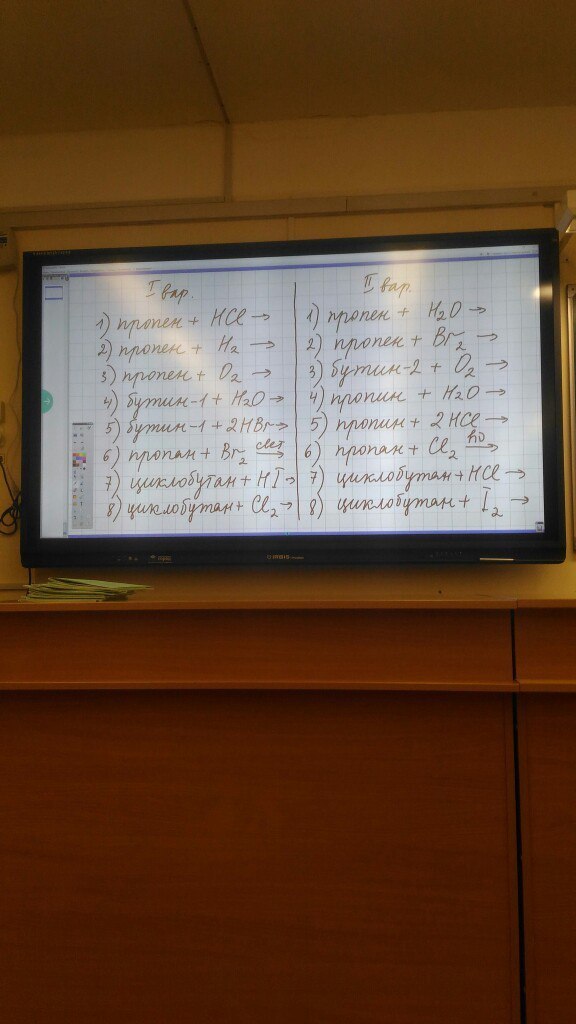 I вар.
1) пропен + HCl →
2) пропен + H2 →
3) пропен + O2 →
4) бутин-1 + H2O →
5) бутин-1 + 2HBr →
6) пропан + Br2 свет →
7) циклобутан + HI →
8) циклобутан + Cl2 →
II вар.
1) пропен + H2O →
2) пропен + Br2 →
3) бутин-2 + O2 →
4) пропин + H2O →
5) пропин + 2HCl →
6) пропан + Cl2 hν →
7) циклобутан + HCl →
8) циклобутан + I2 →